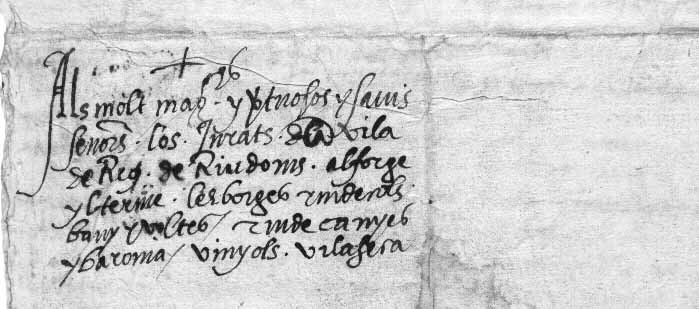 Als molt magchs. y vtuosos y savis
senors. los. Jurats. de la vila
de Reg. de Riudoms. alforge
y lterme. les borges riudecols.
bany y voltes / riudecanyes
y baronia / vinyols. vilaseca